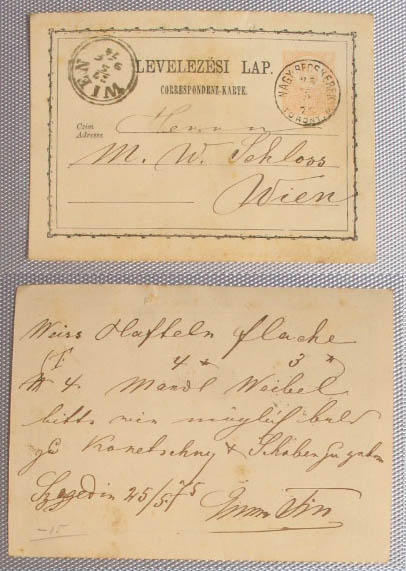 LEVELEZÉSI LAP.
CORRESPONDENZ-KARTE.
WIEN
NAGY-BECSKEREK
Czim
Adresse
Herrn
M. W. Schloss
Wien
Weiss Hafteln flache
4 " 3 "
№ 4. Mandl Weibel
bitte mir möglichst bald
zu Konetschny &
Szegedin 25/5 75
-15